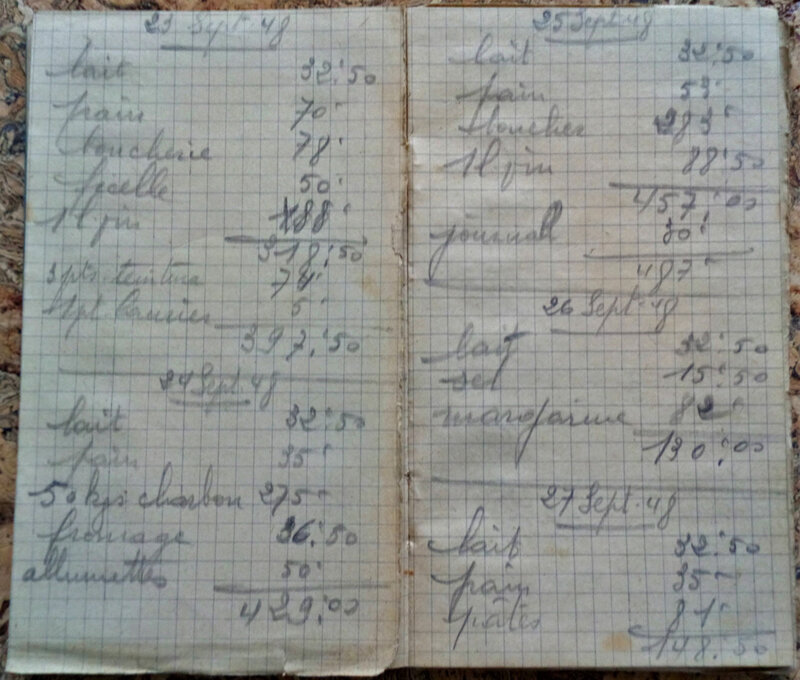 23 Sept 48
lait 32.50
pain 70
boucherie 78
ficelle 50
1 l 88
318.50
3 pts teinture 74
1 pt laurier 5
397.50
24 Sept 48
lait 32.50
pain 35
50 kgs charbon 275
fromage 36.50
allumettes 50
429.00
25 Sept 48
lait 32.50
pain 53
boucher 283
1 l 88.50
457.00
journal 30
487
26 Sept 48
lait 32.50
sel 15.50
margarine 82
130.00
27 Sept 48
lait 32.50
pain 35
pâtes 81
148.50